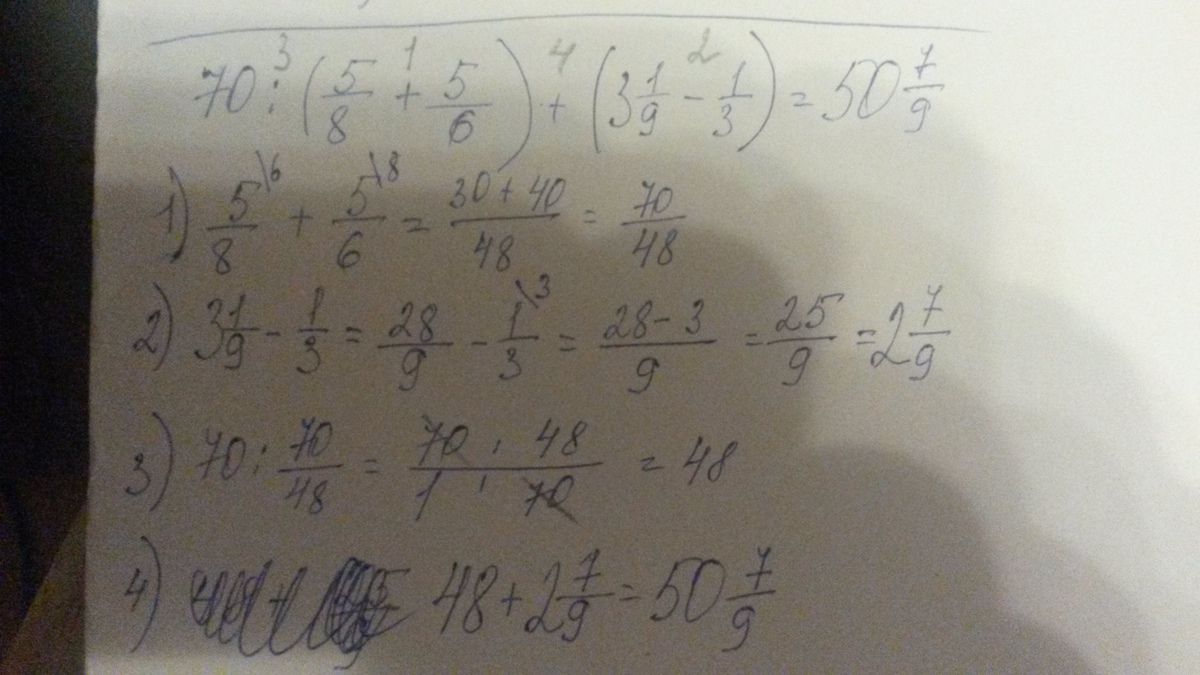 70 : (5/8 + 5/6) + (3 1/9 - 1/3) = 50 7/9
3 1 4 2
1) 5/8 \6 + 5/6 \8 = (30 + 40)/48 = 70/48
2) 3 1/9 - 1/3 = 28/9 - 1/3 \3 = (28 - 3)/9 = 25/9 = 2 7/9
3) 70 : 70/48 = (70 · 48)/(1 · 70) = 48
4) 48 + 2 7/9 = 50 7/9